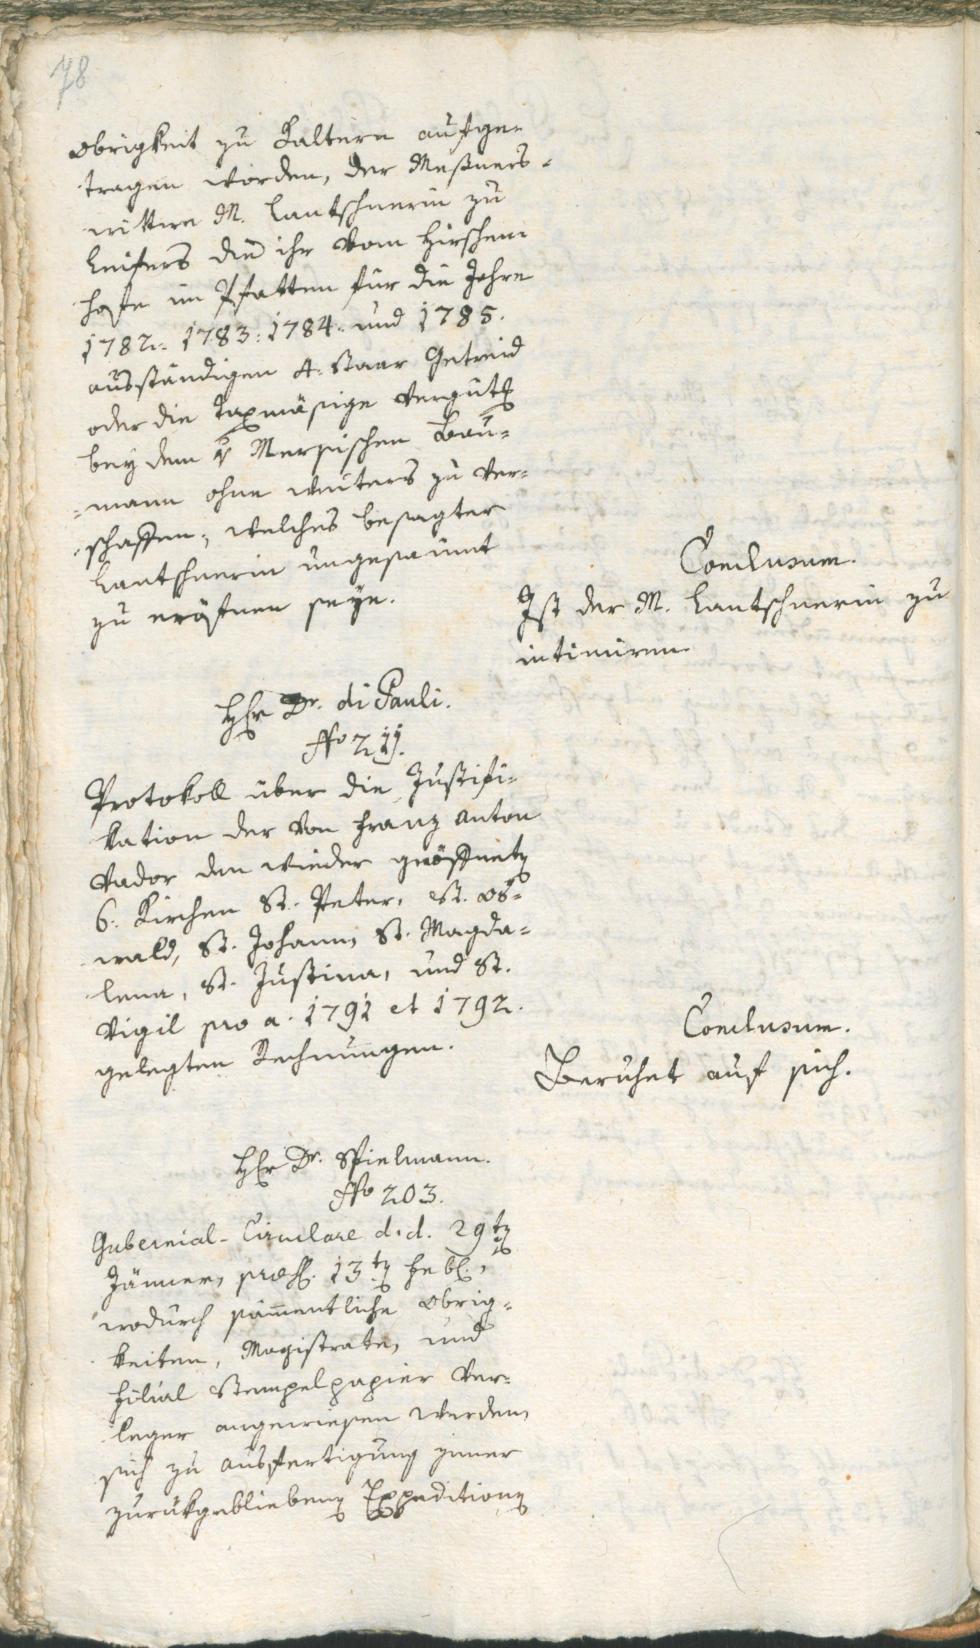 78
Obrigkeit zu Kaltern aufge¬
tragen worden, der Meßners¬
wittwe M. Lantschnerin zu
Leifers die ihr vom Hirschen¬
hofe im Pfatten für die Jahre
1782. 1783. 1784. und 1785.
ausständigen 4. Staar Getreid
oder die Taxmäsige Vergütg
bey dem v Mersischen Bau¬
mann ohne weiters zu ver¬
schaffen, welches besagter
Lantschnerin ungesaumt
zu eröfnen seye.
Conclusum.
Ist der M. Lantschnerin zu
intimiren
Hr Dr. di Pauli.
No
Protokoll über die Justifi¬
kation der von Franz Anton
Vador den wieder geöffnetn
6. Kirchen St. Peter, St. Os¬
wald, St. Johann, St. Magda¬
lena, St. Justina, und St.
Vigil pro a. 1791 et 1792.
gelegten Rechnungen.
Conclusum.
Beruhet auf sich.
Hr Dr. Spielmann.
No 203.
Gubernial-Circulare d. d. 29tn
Jänner, præs. 13tn Febl.,
wodurch säm̄entliche Obrig¬
keiten, Magistrate, und
Filial Stempelpapier Ver¬
leger angewiesen werden,
sich zu Ausfertigung jener
zurükgebliebenn Expeditionn